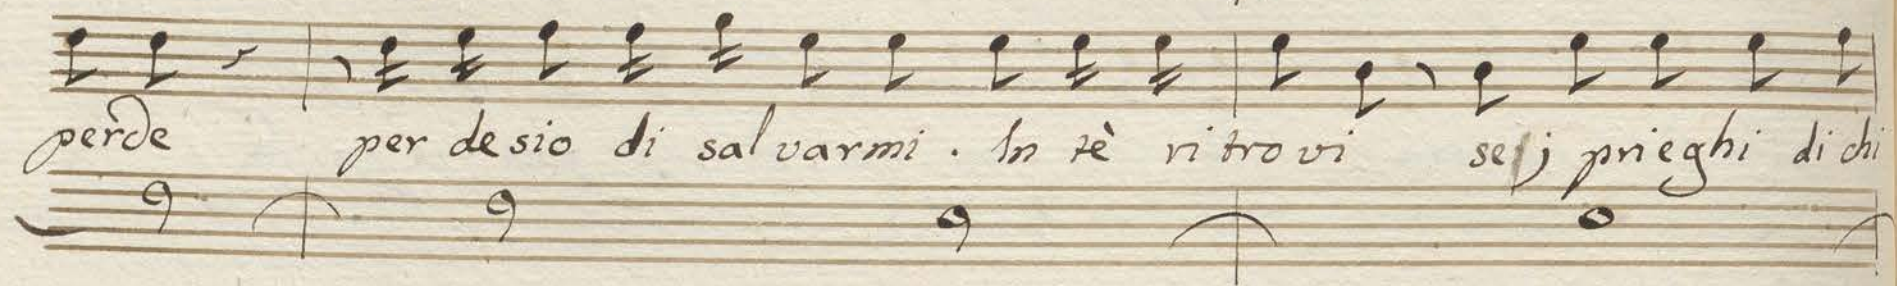 perde per desio di salvarmi. In tè ritrovi se j prieghi di chi